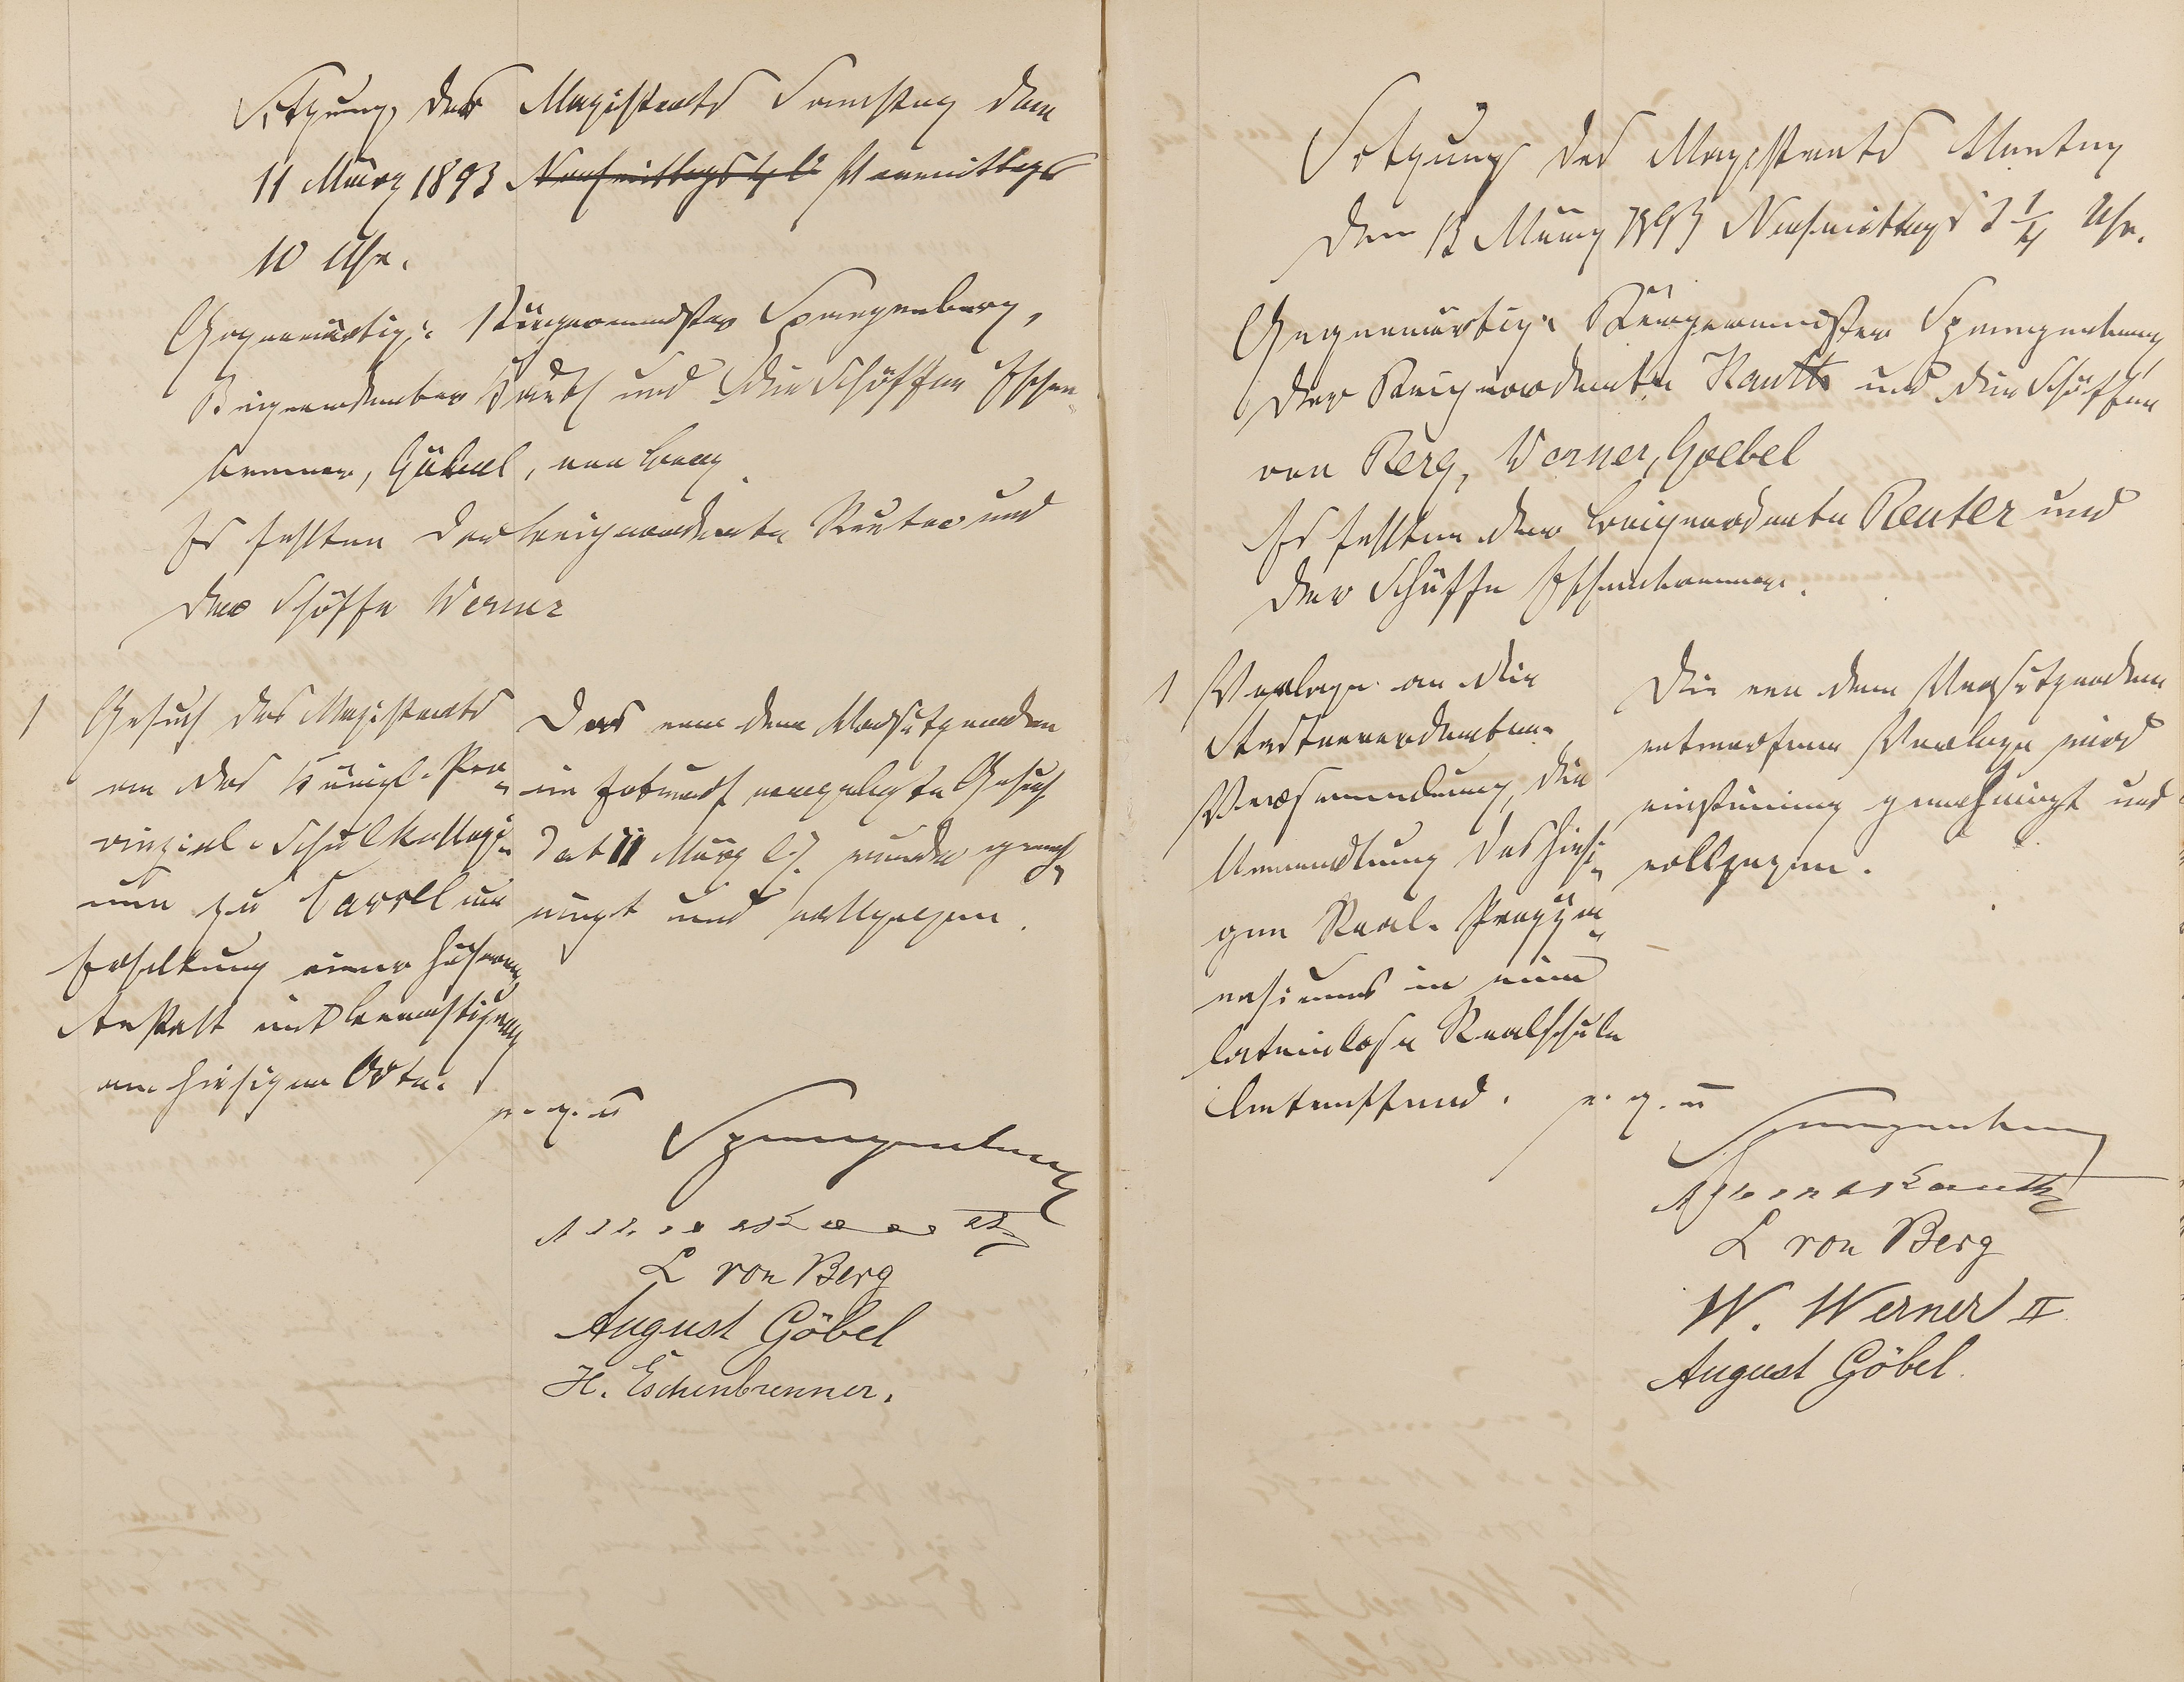 Sitzung des Magistrats Samstag den
11 März 1893 Nachmittags 4 U Vormittags
10 Uhr.
Gegenwärtig: Bürgermeister Spangenberg,
Beigeordneter Kauth und die Schöffen Eschen-
brenner, Göbel, von Berg.
Es fehlten der Beigeordnete Reuter und
der Schöffe Werner
1 Gesuch des Magistrats
an das Königl. Pro-
vinzial-Schulkollegi-
um zu Cassel um
Erhaltung einer höheren
Anstalt mit
am hiesigen Orte.
Das von dem Vorsitzenden
im Entwurf vorgelegte Gesuch
dat 11 März l. J. wurde geneh-
migt und vollzogen.
v. g. u
Spangenberg
Kauth
L von Berg
August Göbel
H. Eschenbrenner.
Sitzung des Magistrats Montag
den 13 März 1893 Nachmittags 3 1/4 Uhr.
Gegenwärtig: Bürgermeister Spangenberg,
der Beigeordnete Kauth und die Schöffen
von Berg, Werner, Goebel
Es fehlten der Beigeordnete Reuter und
der Schöffe Eschenbrenner.
1 Vorlage an die
Stadtverordneten-
Versammlung, die
Umwandlung des hiesi-
gen Real-Progym-
nasiums in eine
lateinlose Realschule
betreffend.
Die von dem Vorsitzenden
entworfene Vorlage wird
einstimmig genehmigt und
vollzogen.
v. g. u
Spangenberg
Kauth
L von Berg
W. Werner II
August Göbel.